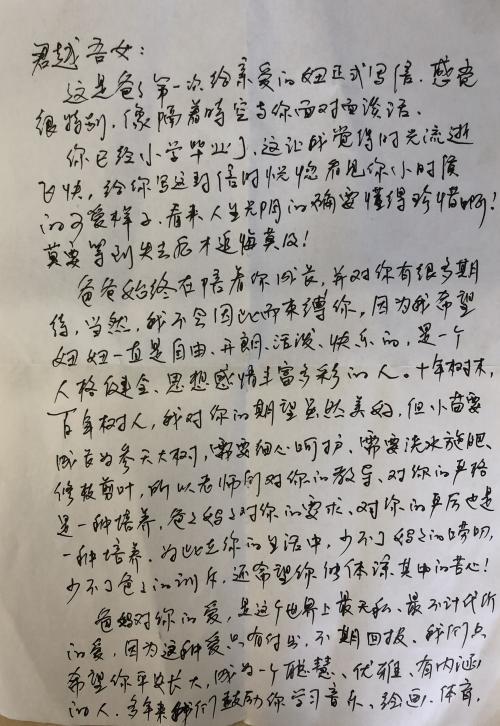 君越吾女：
这是爸爸第一次给亲爱的妞正式写信，感觉
很特别，像隔着時空与你面对面谈话。
你已经小学毕业了，这让我觉得时光流逝
飞快，给你写这封信时恍惚看见你小时候
的可爱样子，看来人生光阴的确要懂得珍惜啊！
莫要等到失去后才追悔莫及！
爸爸始终在陪着你成长，并对你有很多期
待，当然，我不会因此而束缚你，因为我希望
妞妞一直是自由、开朗、活泼、快乐的，是一个
人格健全、思想感情丰富多彩的人。十年树木，
百年树人，我对你的期望虽然美好，但小苗要
成长为参天大树，需要细心呵护，需要浇水施肥、
修枝剪叶，所以老师们对你的教导、对你的严格
是一种培养，爸爸妈妈对你的要求、对你的严厉也是
一种培养。为此在你的生活中，少不了妈妈的唠叨，
少不了爸爸的训斥，还希望你能体谅其中的苦心！
爸妈对你的爱，是这个世界上最无私、最不计代价
的爱，因为这种爱只有付出，不期回报。我们只
希望你平安长大，成为一个聪慧、优雅、有内涵
的人，多年来我们鼓励你学习音乐、绘画、体育，